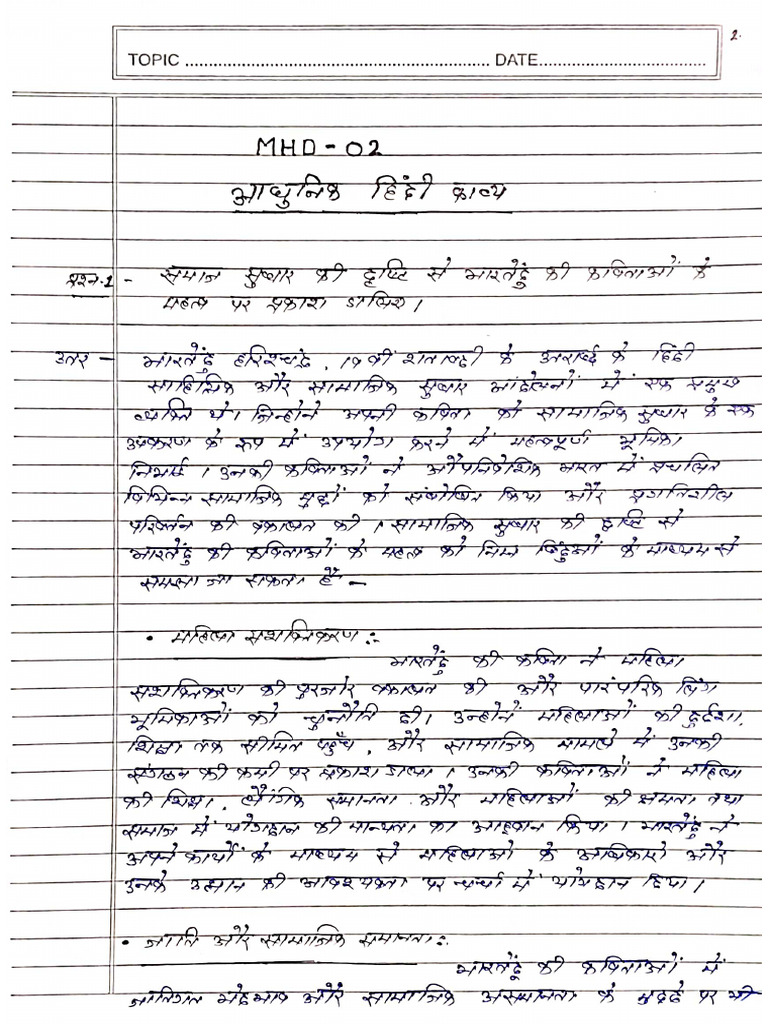 2.
TOPIC ............................................................ DATE.................................
MHD-02
आधुनिक हिंदी काव्य
प्रश्न.1 - समाज सुधार की दृष्टि से भारतेंदु की कविताओं के
महत्व पर प्रकाश डालिए।
उतर - भारतेंदु हरिश्चंद्र, 19वीं शताब्दी के उतरार्द्ध के हिंदी
साहित्यिक और सामाजिक सुधार आंदोलनों में एक प्रमुख
व्यक्ति थे। जिन्होने अपनी कविता को सामाजिक सुधार के एक
उपकरण के रूप में उपयोग करने में महत्वपूर्ण भूमिका
निभाई। उनकी कविताओं ने औपनिवेशिक भारत में प्रचलित
विभिन्न सामाजिक मुद्दों को संबोधित किया और प्रगतिशील
परिवर्तन की वकालत की। सामाजिक सुधार की दृष्टि से
भारतेंदु की कविताओं के महत्व को निम्न बिंदुओं के माध्यम से
समझा जा सकता है -
• महिला सशक्तिकरण :-
भारतेंदु की कविता ने महिला
सशक्तिकरण की पुरजोर वकालत की और पारंपरिक लिंग
भूमिकाओं को चुनौति दी। उन्होनें महिलाओं की दुर्दशा,
शिक्षा तक सीमित पहुँच, और सामाजिक मामले में उनकी
की कमी पर प्रकाश डाला। उनकी कविताओं ने महिला
की शिक्षा, लैंगिक समानता और महिलाओं की क्षमता तथा
समाज में योगदान की मान्यता का आह्वान किया। भारतेंदु ने
अपने कार्यों के माध्यम से महिलाओ के अधिकारो और
उनके उत्थान की आवश्यक्ता पर चर्चा में योगदान दिया।
• जाति और सामाजिक समानता:-
भारतेंदू की कविताओं में
जातिगत भेदभाव और सामाजिक असमानता के मुद्दे पर भी